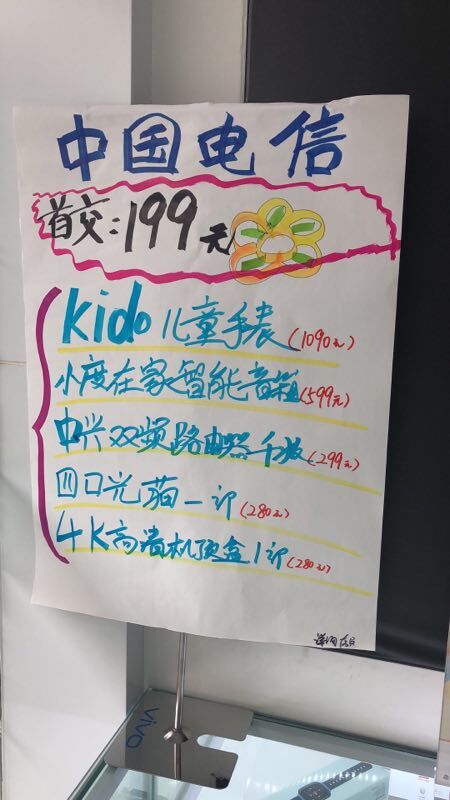 中国电信
首交:199元
kido儿童手表(1090元)
小度在家智能音箱(599元)
中兴双频路由器千兆(299元)
四口光猫一部(280元)
4K高清机顶盒1部(280元)
vivo